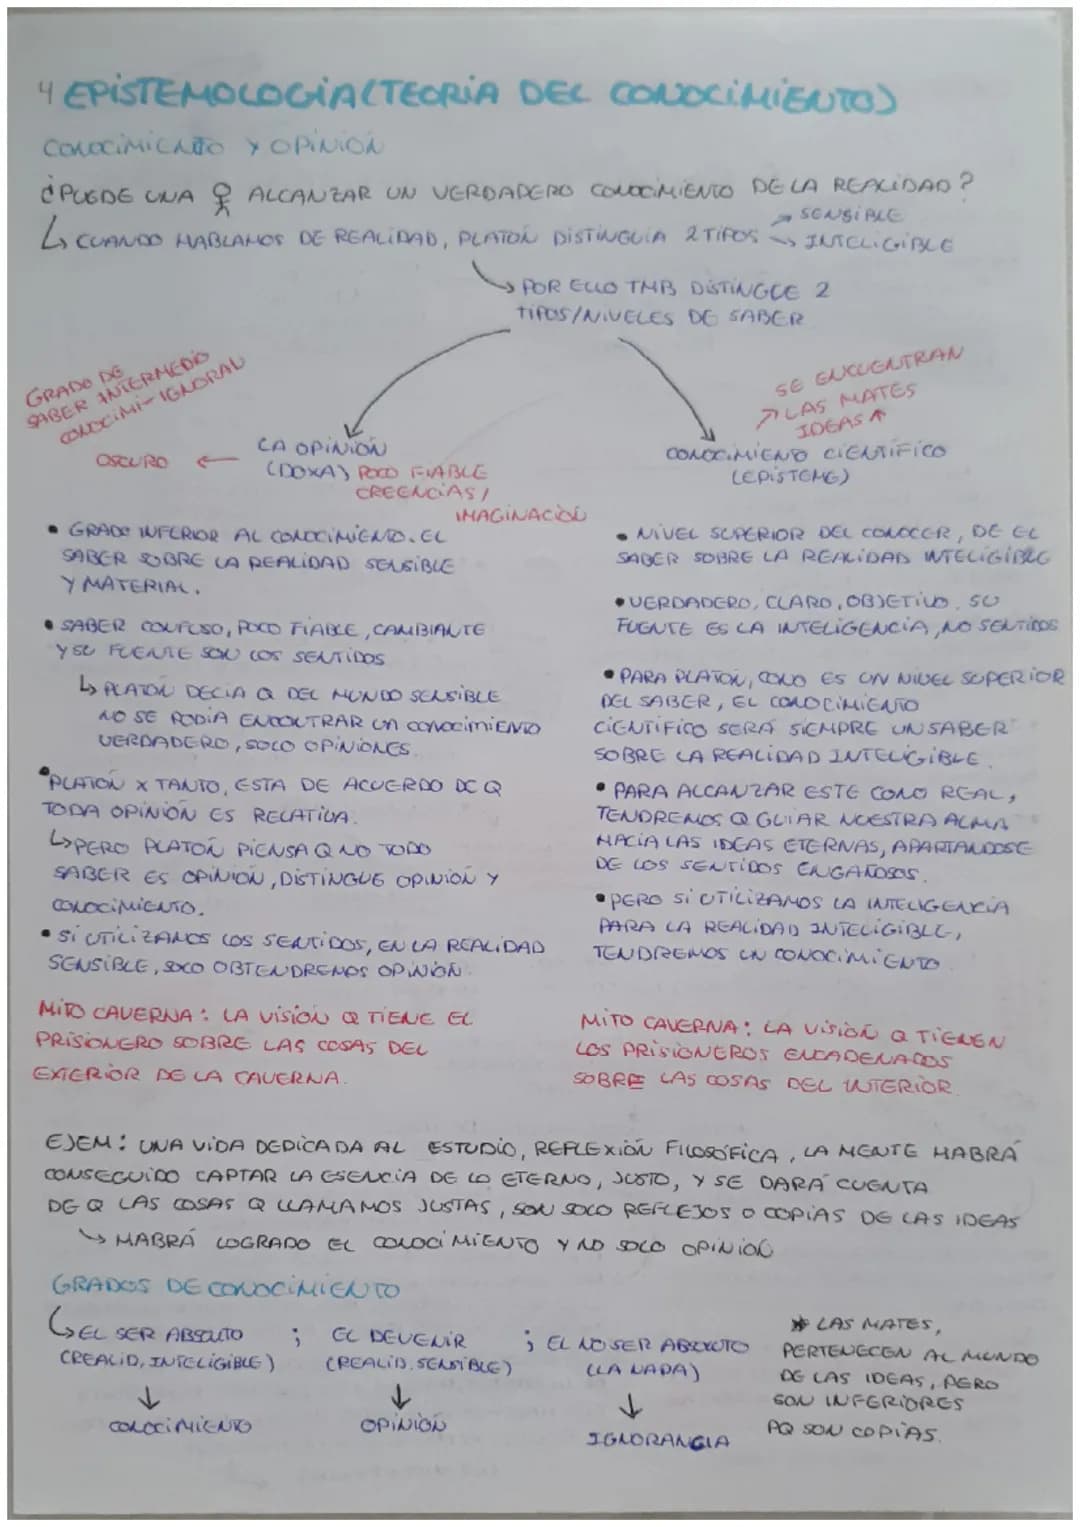 4 EPISTEMOLOGIA (TEORIA DEL CONOCIMIENTO)
CONOCIMIENTO Y OPINIÓN
¿PUEDE UNA ALCANZAR UN VERDADERO CONOCIMIENTO DE LA REALIDAD?
↳ CUANDO HABLAMOS DE REALIDAD, PLATÓN DISTINGUÍA 2 TIPOS
→ SENSIBLE
→ INTELIGIBLE
→ POR ELLO TMB DISTINGUE 2
TIPOS/NIVELES DE SABER
GRADO DE
SABER INTERMEDIO
CONOCIMI-IGNORAN
OSCURO ←
LA OPINIÓN
(DOXA) POCO FIABLE
CREENCIAS/
IMAGINACIÓN
• GRADO INFERIOR AL CONOCIMIENTO. EL
SABER SOBRE LA REALIDAD SENSIBLE
Y MATERIAL.
• SABER CONFUSO, POCO FIABLE, CAMBIANTE
Y SU FUENTE SON LOS SENTIDOS
↳ PLATÓN DECIA Q DEL MUNDO SENSIBLE
NO SE PODIA ENCONTRAR UN CONOCIMIENTO
VERDADERO, SOLO OPINIONES.
• PLATÓN X TANTO, ESTA DE ACUERDO DE Q
TODA OPINIÓN ES RELATIVA.
↳ PERO PLATÓN PIENSA Q NO TODO
SABER ES OPINIÓN, DISTINGUE OPINIÓN Y
CONOCIMIENTO.
• SI UTILIZAMOS LOS SENTIDOS, EN LA REALIDAD
SENSIBLE, SOLO OBTENDREMOS OPINIÓN.
MITO CAVERNA: LA VISIÓN Q TIENE EL
PRISIONERO SOBRE LAS COSAS DEL
EXTERIOR DE LA CAVERNA.
SE ENCUENTRAN
→ LAS MATES
IDEAS ↑
CONOCIMIENTO CIENTÍFICO
(EPISTEME)
• NIVEL SUPERIOR DEL CONOCER, DE EL
SABER SOBRE LA REALIDAD INTELIGIBLE
• VERDADERO, CLARO, OBJETIVO. SU
FUENTE ES LA INTELIGENCIA, NO SENTIDOS
• PARA PLATÓN, COMO ES UN NIVEL SUPERIOR
DEL SABER, EL CONOCIMIENTO
CIENTÍFICO SERÁ SIEMPRE UN SABER
SOBRE LA REALIDAD INTELIGIBLE.
• PARA ALCANZAR ESTE CONO REAL,
TENDREMOS Q GUIAR NUESTRA ALMA
HACIA LAS IDEAS ETERNAS, APARTANDOSE
DE LOS SENTIDOS ENGAÑOSOS.
• PERO SI UTILIZAMOS LA INTELIGENCIA
PARA LA REALIDAD INTELIGIBLE,
TENDREMOS UN CONOCIMIENTO
MITO CAVERNA: LA VISIÓN Q TIENEN
LOS PRISIONEROS ENCADENADOS
SOBRE LAS COSAS DEL INTERIOR.
EJEM: UNA VIDA DEDICADA AL ESTUDIO, REFLEXIÓN FILOSÓFICA, LA MENTE HABRÁ
CONSEGUIDO CAPTAR LA ESENCIA DE LO ETERNO, JUSTO, Y SE DARÁ CUENTA
DE Q LAS COSAS Q LLAMAMOS JUSTAS, SON SOLO REFLEJOS O COPIAS DE LAS IDEAS
↳ HABRÁ LOGRADO EL CONOCIMIENTO Y NO SOLO OPINIÓN
GRADOS DE CONOCIMIENTO
↳ EL SER ABSOLUTO ; EL DEVENIR ; EL NO SER ABSOLUTO
(REALID, INTELIGIBLE) (REALID. SENSIBLE) (LA NADA)
↓ ↓ ↓
CONOCIMIENTO OPINIÓN IGNORANCIA
* LAS MATES,
PERTENECEN AL MUNDO
DE LAS IDEAS, PERO
SON INFERIORES
PQ SON COPIAS.